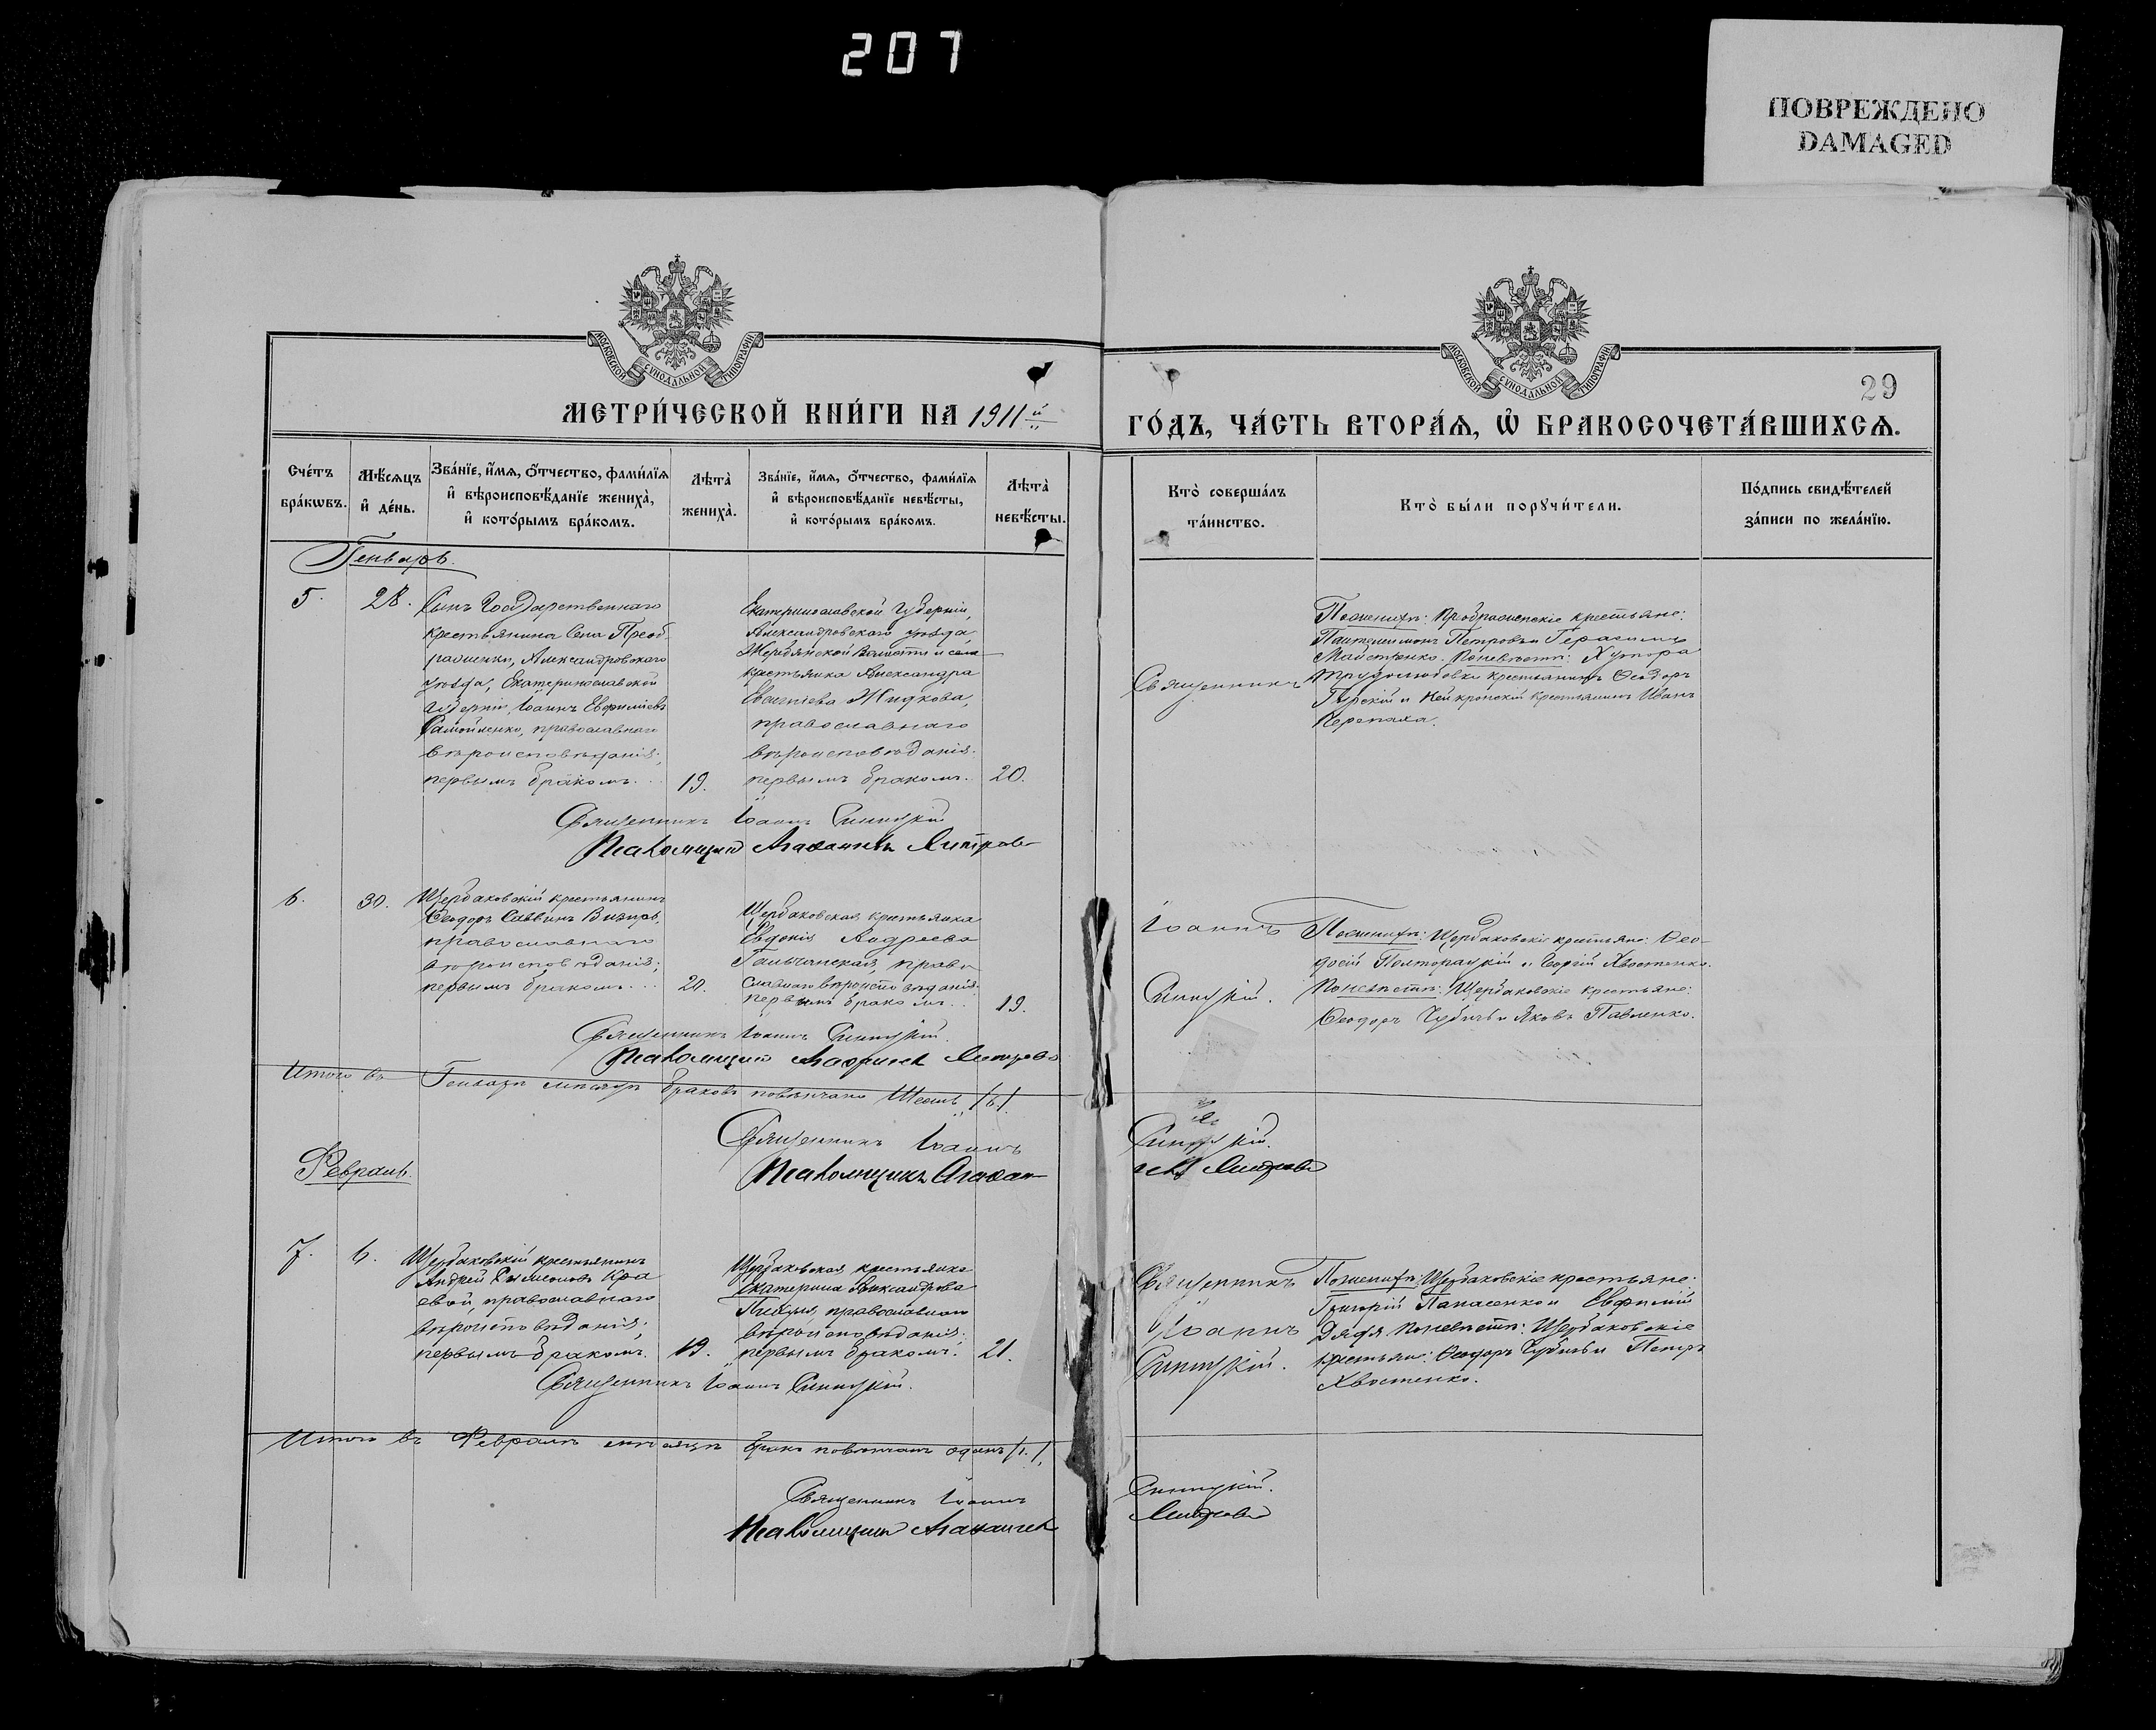 207
ПОВРЕЖДЕНО
DAMAGED
МОСКОВСКОЙ СУНОДАЛЬНОЙ ТИПОГРАФІИ
МОСКОВСКОЙ СУНОДАЛЬНОЙ ТИПОГРАФІИ
29
МЕТРИ́ЧЕСКОЙ КНИ́ГИ НА 1911й
ГО́ДЪ, ЧА́СТЬ ВТОРА́Ѧ, Ѡ҆ БРАКОСОЧЕТА́ВШИХСѦ.
Сче́тъ
бра́кѡвъ.
Мѣ́сѧцъ
и҆ де́нь.
Зва́нїе, и҆́мѧ, ѻ҆́тчество, фами́лїѧ
и҆ вѣроисповѣ́данїе жениха̀,
и҆ кото́рымъ бра́комъ.
Лѣта̀
жениха̀.
Зва́нїе, и҆́мѧ, ѻ҆́тчество, фами́лїѧ
и҆ вѣроисповѣ́данїе невѣ́сты,
и҆ кото́рымъ бра́комъ.
Лѣта̀
невѣ́сты.
Кто̀ соверша́лъ
та́инство.
Кто̀ бы́ли порꙋчи́тели.
По́дпись свидѣ́телей
за́писи по жела́нїю.
Генварь.
5.
28.
Сынъ Государственнаго
крестьянина села Преоб
раженки, Александровскаго
уѣзда, Екатеринославской
губерніи, Іоаннъ Евфиміевъ
Самойленко, православнаго
вѣроисповѣданія;
первымъ бракомъ...
19.
Екатеринославской губерніи,
Александровскаго уѣзда,
Жеребянской Волости и села
крестьянка Александра
Евгеніева Жидкова,
православнаго
вѣроисповѣданія.
первымъ бракомъ..
20.
Священникъ
По женихѣ: Преображенскіе крестьяне:
Пантелеимонъ Петровъ и Герасимъ
Майстренко. По невѣстѣ: Хутора
Трудолюбовки крестьянинъ Ѳеодоръ
Гурскій и Нейкронскій крестьянинъ Иванъ
Перепаха.
Священникъ Іоаннъ Синицкій
Псаломщикъ
6.
30.
Щербаковскій крестьянинъ
Ѳеодоръ Саввинъ Визиръ,
православнаго
вѣроисповѣданія;
первымъ бракомъ...
20.
Щербаковская крестьянка
Евдокія Андреева
Гальчанская, право
славнаго вѣроисповѣданія.
первымъ бракомъ..
19.
Іоаннъ
Синицкій.
По женихѣ: Щербаковскіе крестьяне: Ѳео-
досій Полторацкій и Георгій Хвостенко.
По невѣстѣ: Щербаковскіе крестьяне:
Ѳеодоръ Чубичъ и Яковъ Павленко.
Священникъ Іоаннъ Синицкій.
Псаломщикъ
Итого въ Генварѣ мѣсяцѣ браковъ повѣнчано Шесть /6/.
Священникъ Іоаннъ Синицкій.
Псаломщикъ
Февраль.
7.
6.
Щербаковскій крестьянинъ
Андрей Симеоновъ Кра
евой, православнаго
вѣроисповѣданія;
первымъ бракомъ.
19.
Щербаковская крестьянка
Екатерина Александрова
православнаго
вѣроисповѣданія.
первымъ бракомъ.
21.
Священникъ
Іоаннъ
Синицкій.
По женихѣ: Щербаковскіе крестьяне:
Григорій Панасенко и Евфимій
Дядя По невѣстѣ: Щербаковскіе
крестьяне: Ѳеодоръ Чубичъ и Петръ
Хвостенко.
Священникъ Іоаннъ Синицкій.
Итого въ Февралѣ мѣсяцѣ бракъ повѣнчанъ одинъ /1./.
Священникъ Іоаннъ Синицкій.
Псаломщикъ